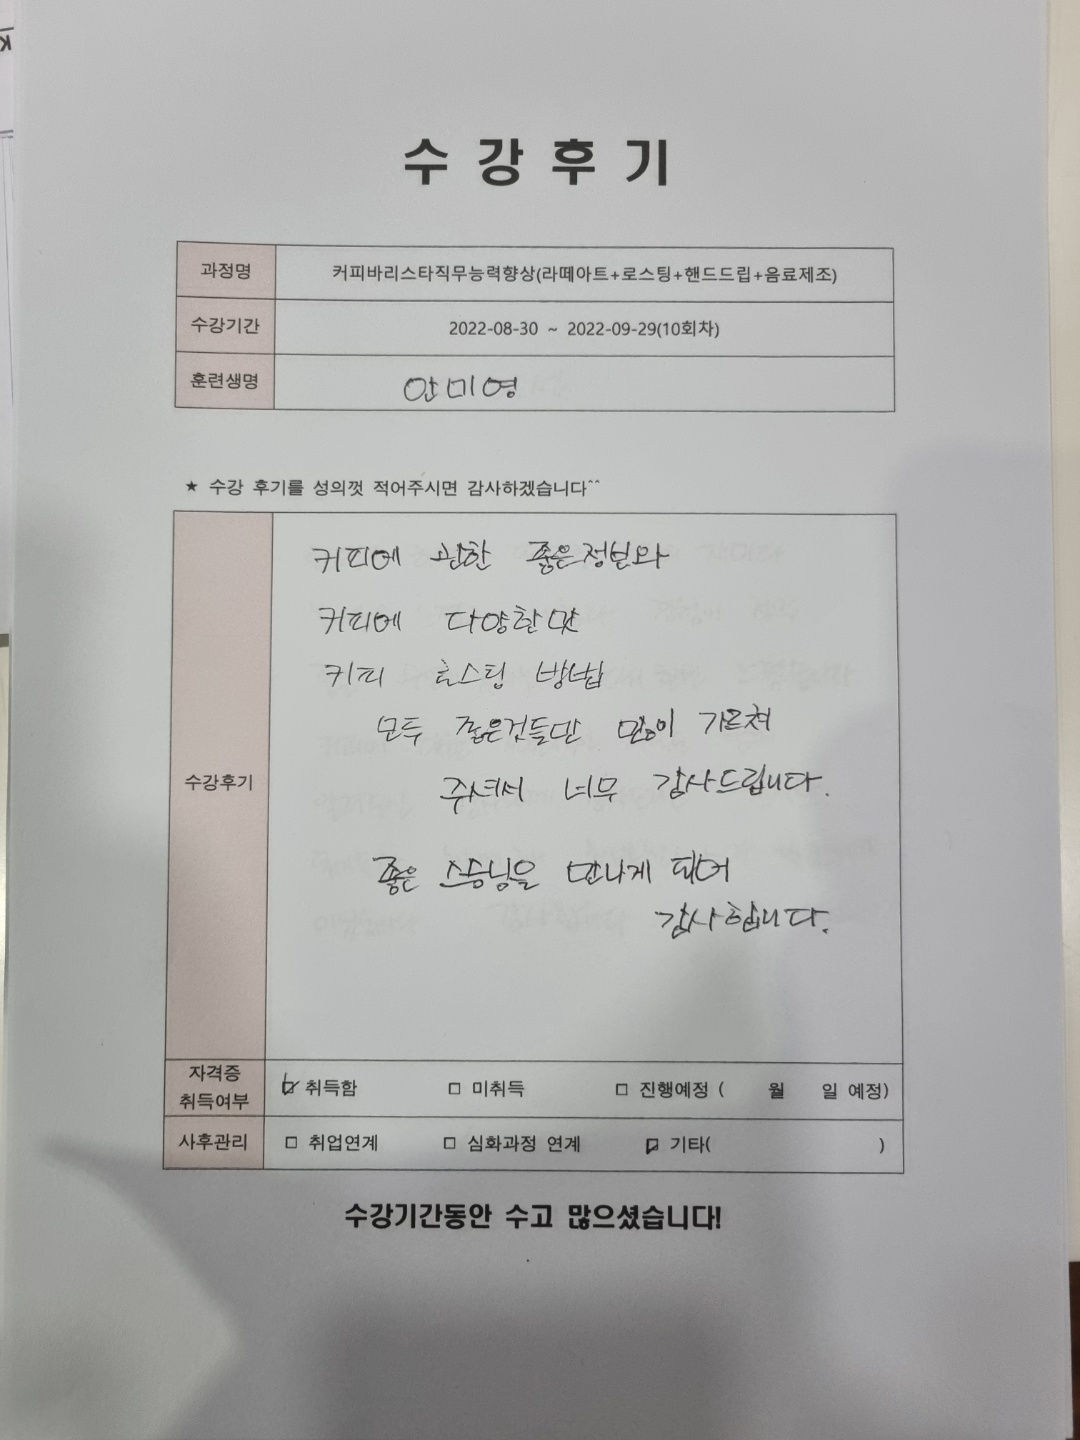 수 강 후 기
과정명 커피바리스타직무능력향상(라떼아트+로스팅+핸드드립+음료제조)
수강기간 2022-08-30 ~ 2022-09-29(10회차)
훈련생명 안미영
★ 수강 후기를 성의껏 적어주시면 감사하겠습니다^^
수강후기
커피에 관한 좋은정보와
커피에 다양한 맛
커피 로스팅 방법
모두 좋은것들만 많이 가르쳐
주셔서 너무 감사드립니다.
좋은 스승님을 만나게 되어
감사합니다.
자격증
취득여부
☑ 취득함 □ 미취득 □ 진행예정 ( 월 일 예정)
사후관리 □ 취업연계 □ 심화과정 연계 ☑ 기타( )
수강기간동안 수고 많으셨습니다!